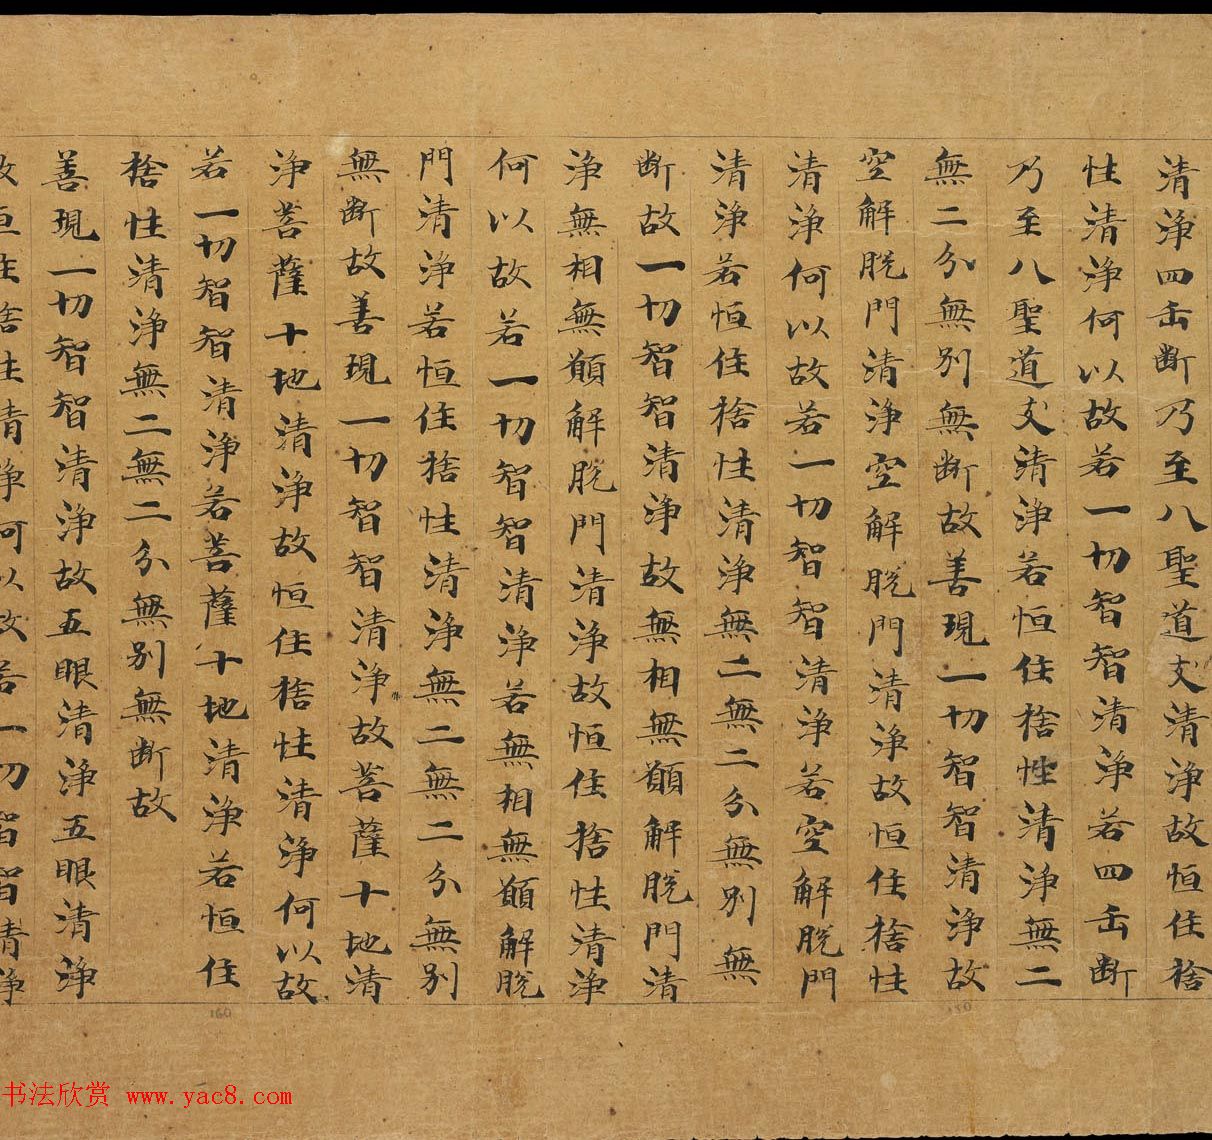 清浄四正断乃至八聖道支清浄故恒住捨
性清浄何以故若一切智智清浄若四正断
乃至八聖道支清浄若恒住捨性清浄無二
無二分無別無断故善現一切智智清浄故
空解脱門清浄空解脱門清浄故恒住捨性
清浄何以故若一切智智清浄若空解脱門
清浄若恒住捨性清浄無二無二分無別無
断故一切智智清浄故無相無願解脱門清
浄無相無願解脱門清浄故恒住捨性清浄
何以故若一切智智清浄若無相無願解脱
門清浄若恒住捨性清浄無二無二分無別
無断故善現一切智智清浄故菩薩十地清
浄菩薩十地清浄故恒住捨性清浄何以故
若一切智智清浄若菩薩十地清浄若恒住
捨性清浄無二無二分無別無断故
善現一切智智清浄故五眼清浄五眼清浄
故恒住捨性清浄何以故若一切智智清浄
160
书法欣赏 www.yac8.com